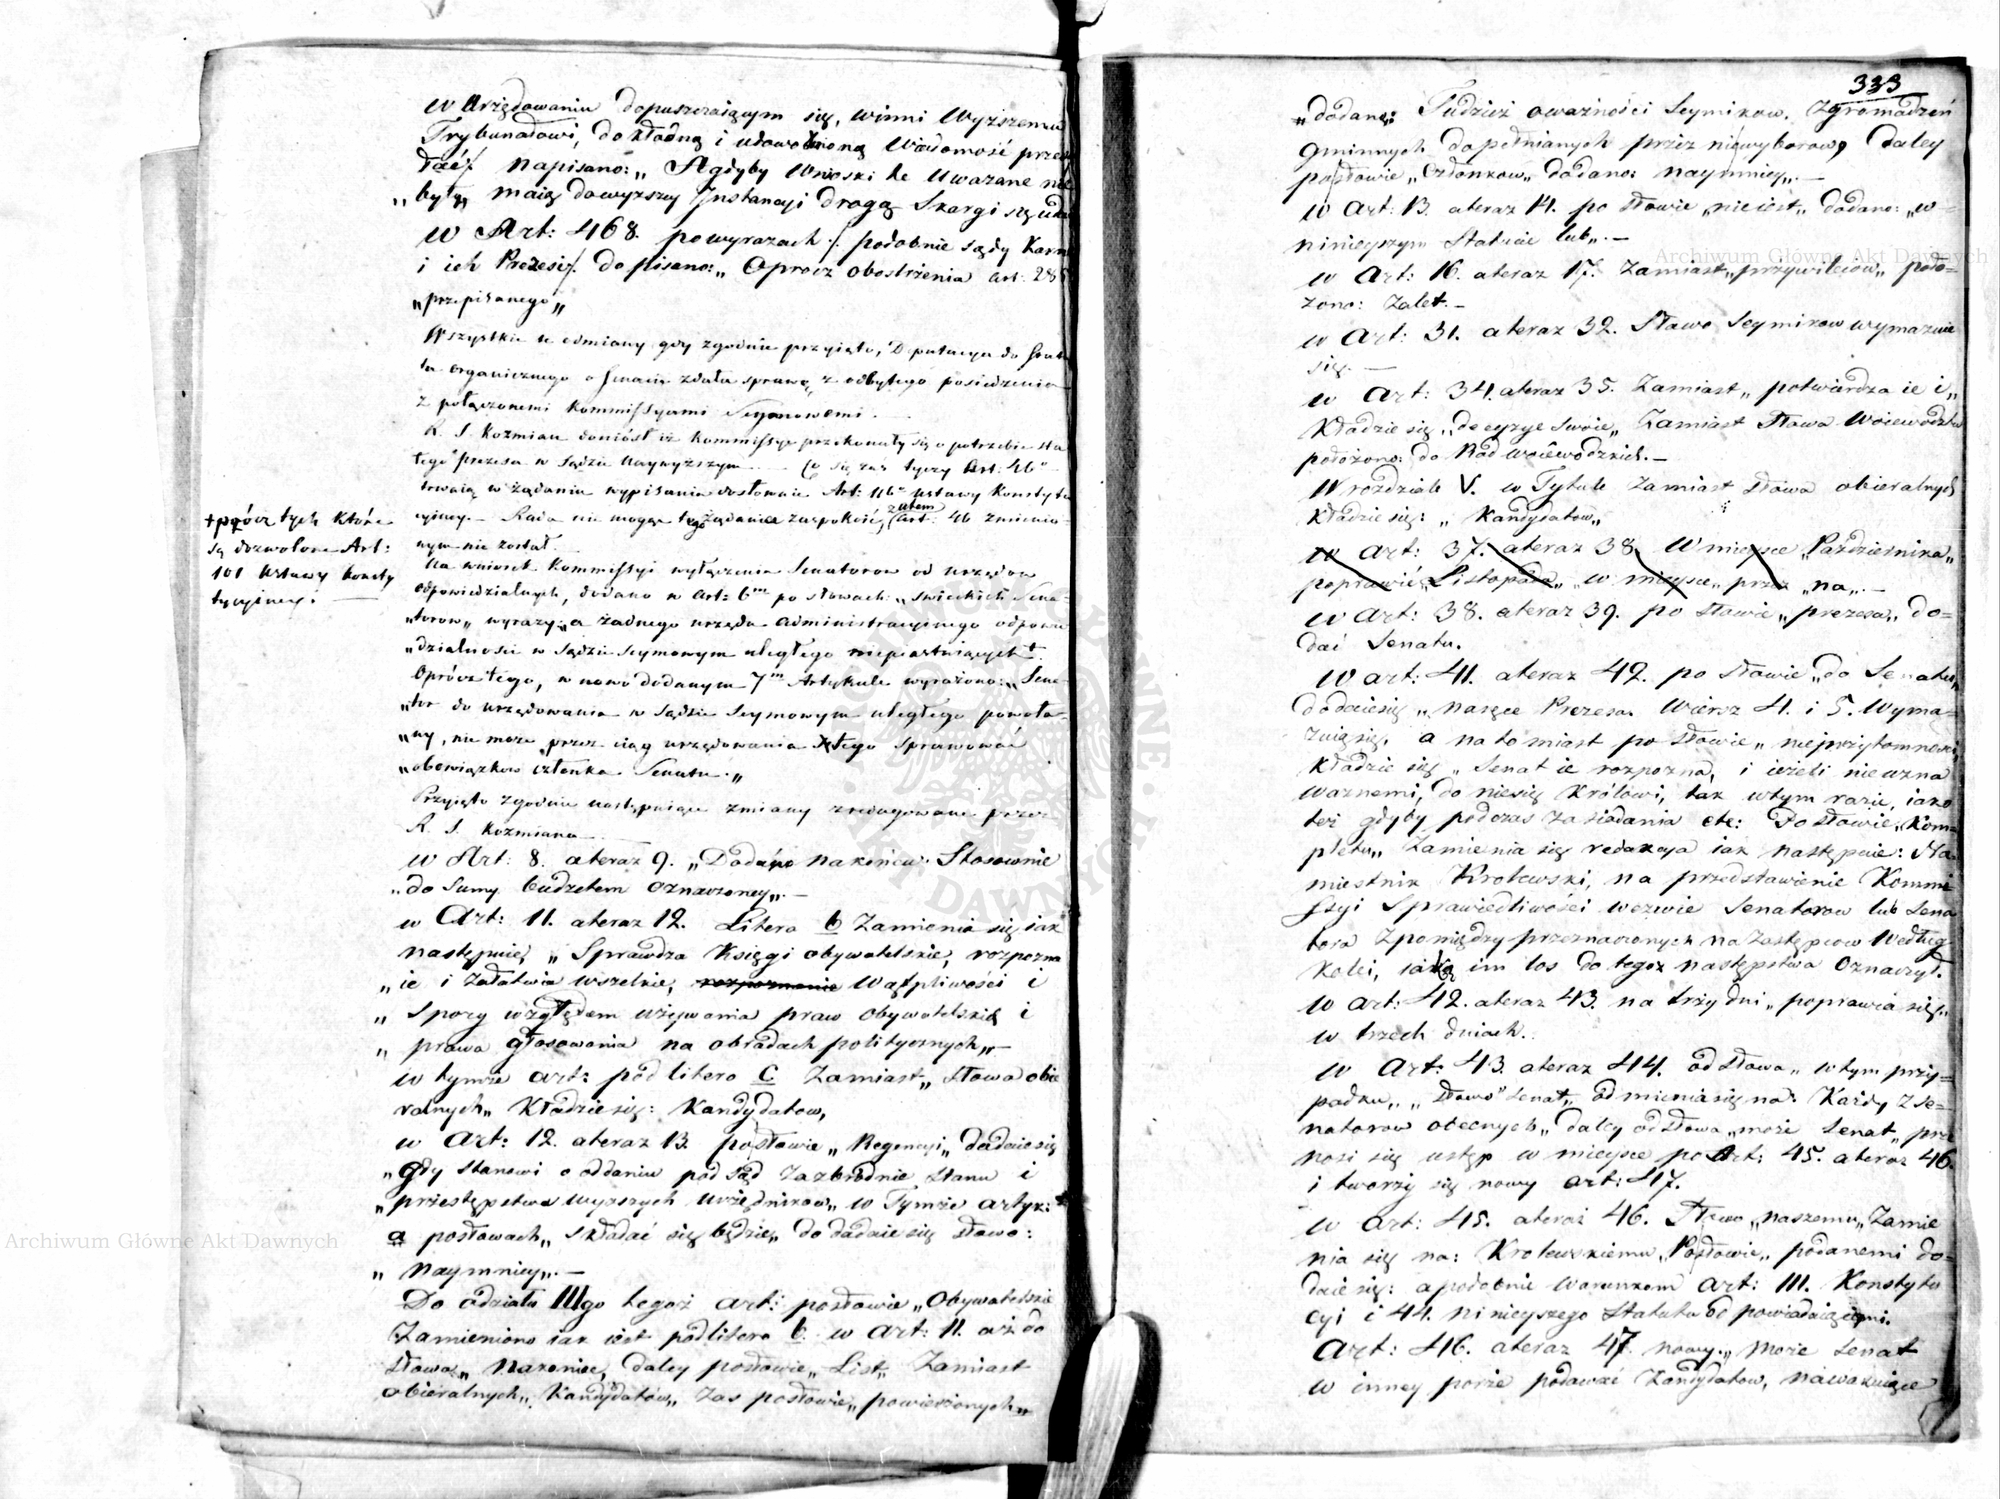 w Urzędowaniu dopuszczaiącym się, winni Wyższemu
Trybunałowi, dokładną i udowodnioną Wiadomość przes
łać/ napisano: „ A gdyby Wnioski te Uważane nie
„były maią do wyższey Instancyi drogą Skargi się uda
w Art: 468. po wyrazach :/ podobnie sądy Karne
i ich Prezesi/: dopisano: „ Oprocz obostrżenia art: 28
„przepisanego„
Wszystkie te odmiany gdy zgodnie przyięto, Deputacya do Statu
tu organicznego o Senacie zdała sprawę, z odbytego posiedzenia
z połączonemi Kommissyami Seymowemi. —
R. S. Kozmian doniósł iż Kommissye przekonały się o potrzebie sta
łego prezesa w Sądzie Naywyższym — Co się zaś tyczy Art: 46°
trwaią w żądaniu wypisania dosłownie Art: 116° ustawy Konstytu
cyiney. — Rada nie mogąc tego żądania zaspokoić, zatem art: 46 zmienio-
nym nie został.
Na wniosek Kommissyi wyłączenia Senatorow od urzędow
odpowiedzialnych, dodano w Art: 6m po słowach: „swieckich Sena-
„torow„ wyrazy: „a żadnego urzędu administracyinego odpowie
„dzialności w Sądzie Seymowym uległego niepiastuiących +
Oprócz tego, w nowo dodanym 7m Artykule wyrażono: „Sena-
„tor do urzędowania w Sądzie Seymowym uległego powoła-
„ny, nie może przez ciąg urzędowania tego sprawować
„obowiązkow członka Senatu.„
Przyięto zgodnie następuiące zmiany zredagowane przez
R. S. Kozmiana.
w Art: 8. a teraz 9. „Dodano na końcu: Stosownie
„do Sumy budżetem oznaczoney„. —
w Art: 11. a teraz 12. Litera b Zamienia się iak
następuie, „ Sprawdza Księgi obywatelskie, rozpozna
„ie i Załatwia wszelkie, rozpoznanie Wątpliwości i
„ Spory względem używania praw obywatelskich i
„ prawa głosowania na obradach politycznych„. —
w tymże art: pod litero C Zamiast „ Słowa obie
ralnych„ Kładzie się: Kandydatow,
w Art: 12. a teraz 13. po słowie „ Regencyi„ dodaie się
„gdy stanowi o oddaniu pod Sąd za zbrodnie Stanu i
„przestępstwa wyższych urzędnikow„ w Tymże artyk:
a po słowach „ składać się będzie„ do dodaie się Słowo:
„ Naymniey„. —
Do odziału IIIgo tegoż art: po słowie „Obywatelskie
Zamieniono iak iest pod litero b w Art: 11. aż do
Słowa „ Nakoniec, daley po słowie „ List„ Zamiast
obieralnych„ Kandydatów„ Zaś po słowie „powierzonych„
+ prócz tych które
są dozwolone Art:
101 Ustawy Konsty
tucyiney. —
333
„dodano: Tudzież o ważności Seymikow. Zgromadzeń
Gminnych dopełnianych przez nie wyborow, Daley
po słowie „Członkow„ dodano: naymniey„. —
w Art: 13. a teraz 14. po słowie „nie iest„ dodano: „w
ninieyszym Statucie lub„. —
w Art: 16. a teraz 17. Zamiast „przywileiow„ poło=
żono: Zalet. —
w Art: 31. a teraz 32. Słowo Seymikow wymazuie
się. —
w Art: 34. a teraz 35. Zamiast „ potwierdza ie i„
Kładzie się „decyzye swoie„ Zamiast Słowa Woiewodztw
położono: do Rad woiewodzkich. —
W rozdziale V. w Tytule Zamiast Słowa obieralnych
Kładzie się: „ Kandydatow„
w Art: 37. a teraz 38. W mieysce „Października„
poprawić „Listopada„ w mieysce „przez „na„. —
w Art: 38. a teraz 39. po słowie „prezesa„ do=
dać Senatu.
w art: 41. a teraz 42. po słowie „do Senatu„
dodaie się „na ręce Prezesa. Wiersz 4. i 5. Wyma=
zuie się, a natomiast po słowie „ nieprzytomności
Kładzie się „ Senat ie rozpozna, i ieżeli nie uzna
ważnemi, do niesie Królowi, tak w tym razie, iako
też gdyby podczas zasiadania etc: Po słowie „Kom=
pletu„ Zamienia się redakcya iak następuie: Na=
miestnik Krolewski, na przedstawienie Kommi
ssyi Sprawiedliwości wezwie Senatorow lub Sena
tora Zpomiędzy przeznaczonych na Zastępcow Według
Kolei, iaką im los do tegoż następstwa Oznaczył.
w art: 42. a teraz 43. na trzy dni „ poprawia się „
w trzech dniach.
w Art: 43. a teraz 44. od Słowa „ w tym przy=
padku„ „Słowo „Senat„ odmienia się na: Każdy z Se=
natorow obecnych„ daley od Słowa „może Senat„ prze
nosi się ustęp w mieysce po Art: 45. a teraz 46.
i tworzy się nowy art: 47.
w Art: 45. a teraz 46. Słowo „naszemu„ Zamie
nia się na: Krolewskiemu „Po słowie„ podanemi do=
daie się: a podobnie Warunkom art: 111. Konstytu
cyi i 44. ninieyszego Statutu odpowiadaiącemi.
Art: 46. a teraz 47. nowy. „ Może Senat
w inney porze podawać Kandydatow, na wakuiące